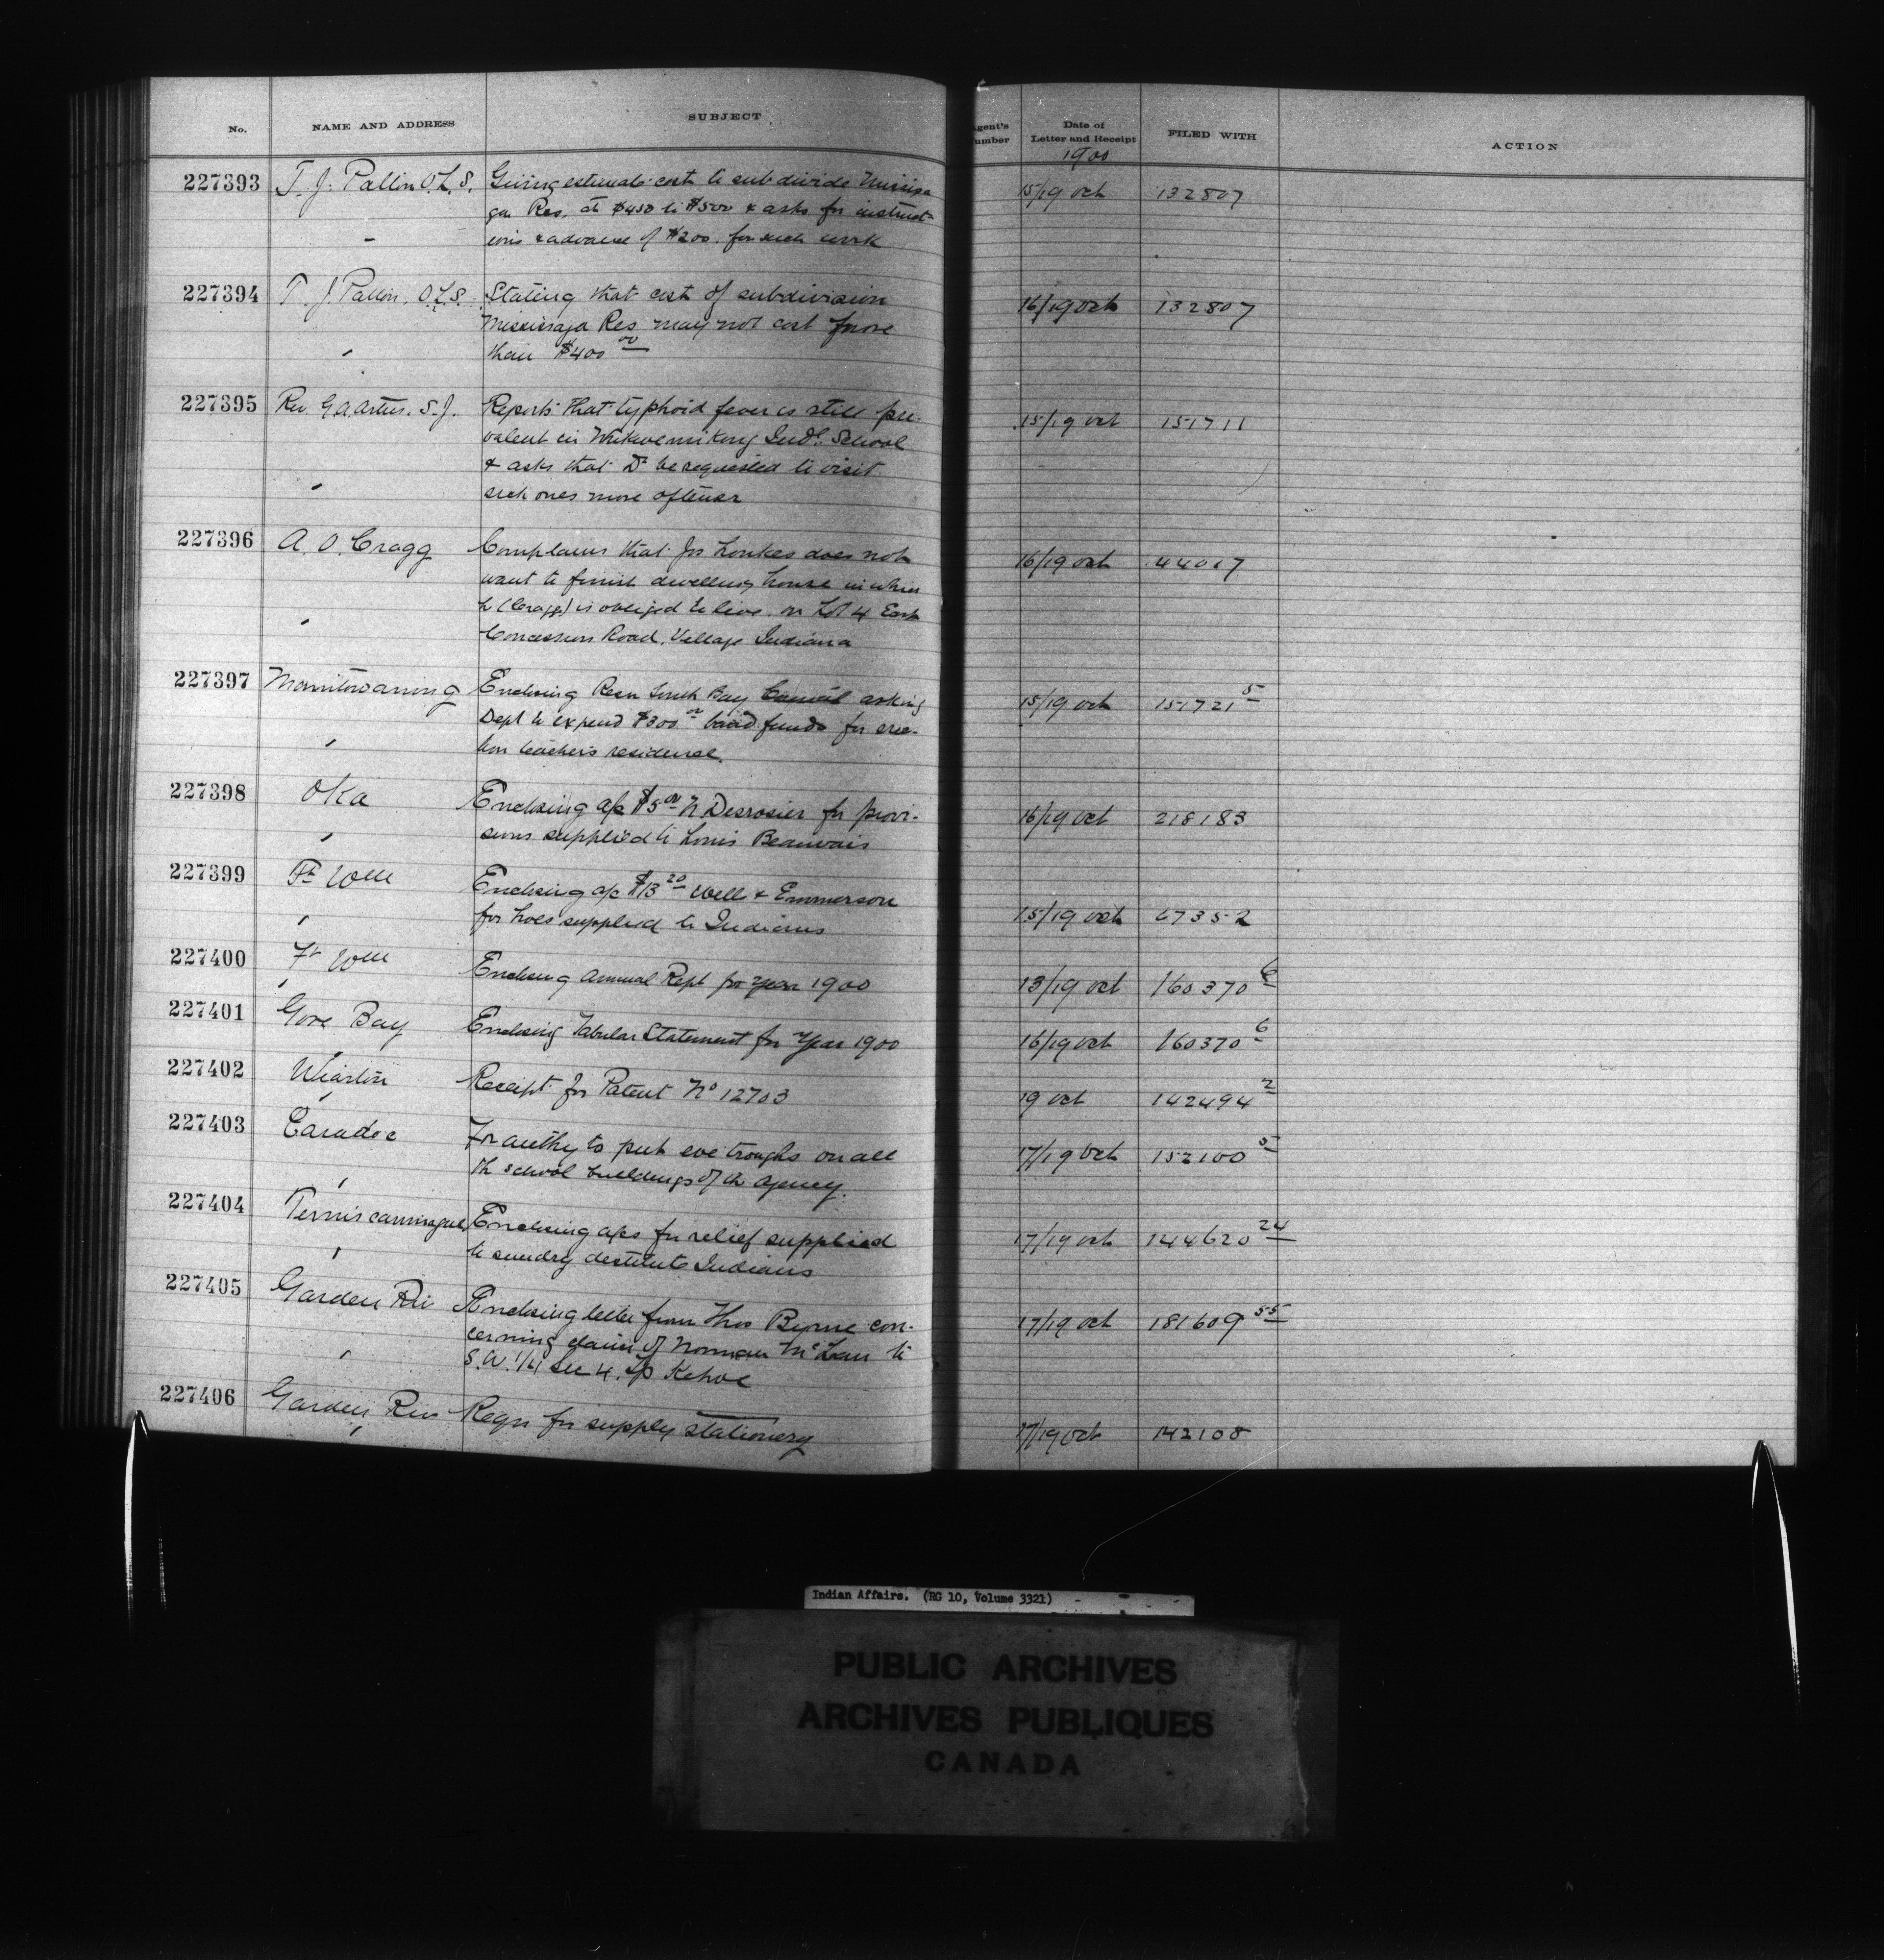 No. NAME AND ADDRESS SUBJECT Agent's Number Date of Letter and Receipt FILED WITH ACTION
1900
227393 T. J. Pallin O.L.S. Giving estimate cost to subdivide Missisa 15/19 Oct 132807
ga Res. at $450 to $500 & asks for instruct-
ions & advance of $200. for such work
227394 T. J. Pallin, O.L.S. Stating that cost of subdivision 16/19 Oct 132807
Mississaga Res may not cost more
than $400 00
227395 Rev. G.A. Artus. S.J. Reports that typhoid fever is still pre- 15/19 Oct 151711
valent in Wikwemikong Indl. School
& asks that Dr be requested to visit
sick ones more oftener
227396 A. O. Cragg Complains that Jos does not 16/19 Oct 44017
want to finish dwelling house in which
he (Cragg) is obliged to live on Lot 4 East
Concession Road, Village Indiana
227397 Manitowaning Enclosing Resn South Bay Council asking 15/19 Oct 151721 5
Dept to expend $300 00 band funds for erec-
tion teacher's residence.
227398 Oka Enclosing a/c $5 00 N Desrosier for provi- 16/19 Oct 218183
sions supplied to Louis Beauvais
227399 Ft Wm Enclosing a/c $13 20 Wells & Emmerson 15/19 Oct 67352
for hoes supplied to Indians
227400 Ft Wm Enclosing Annual Rept for year 1900 13/19 Oct 160370 6
227401 Gore Bay Enclosing Tabular Statement for Year 1900 16/19 Oct 160370 6
227402 Wiarton Receipt for Patent No 12703 19 Oct 142494 2
227403 Caradoc For authy to put eve troughs on all 17/19 Oct 152100 5
the school buildings of the agency.
227404 Temiscamingue Enclosing a/cs for relief supplied 17/19 Oct 144620 24
to sundry destitute Indians
227405 Garden Riv Enclosing letter from Thos Byrne con- 17/19 Oct 181609 55
cerning claim of Norman to
S.W. 1/4 Sec 4. Tp Kehoe
227406 Garden Riv Reqn for supply stationery 17/19 Oct 142108
Indian Affairs. (RG 10, Volume 3321)
PUBLIC ARCHIVES
ARCHIVES PUBLIQUES
CANADA